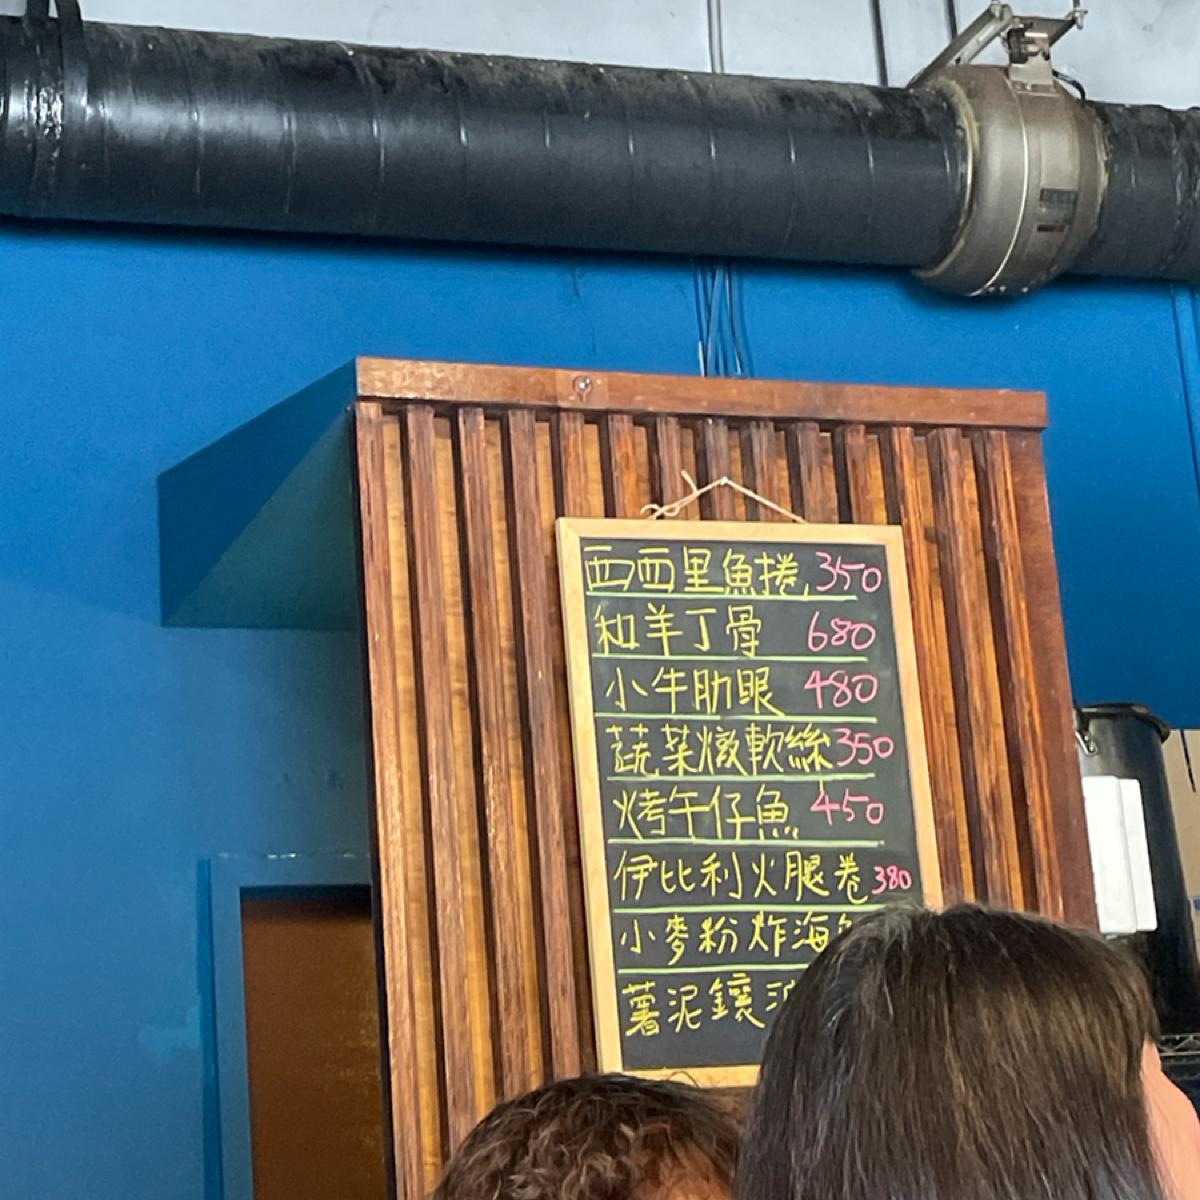 西西里魚捲 350
和羊丁骨 680
小牛肋眼 480
蔬菜燉軟絲 350
烤午仔魚 450
伊比利火腿卷 380
小麥粉炸海
薯泥鑲